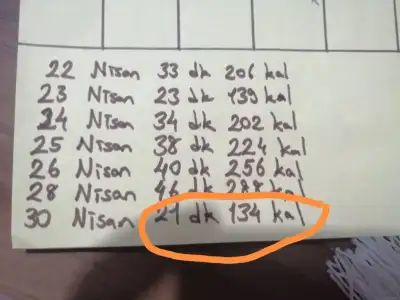 22 Nisan 33 dk 206 kal
23 Nisan 23 dk 139 kal
24 Nisan 34 dk 202 kal
25 Nisan 38 dk 224 kal
26 Nisan 40 dk 256 kal
28 Nisan 46 dk 288 kal
30 Nisan 21 dk 134 kal